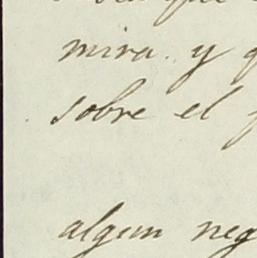 mira. y
sobre el
algun neg